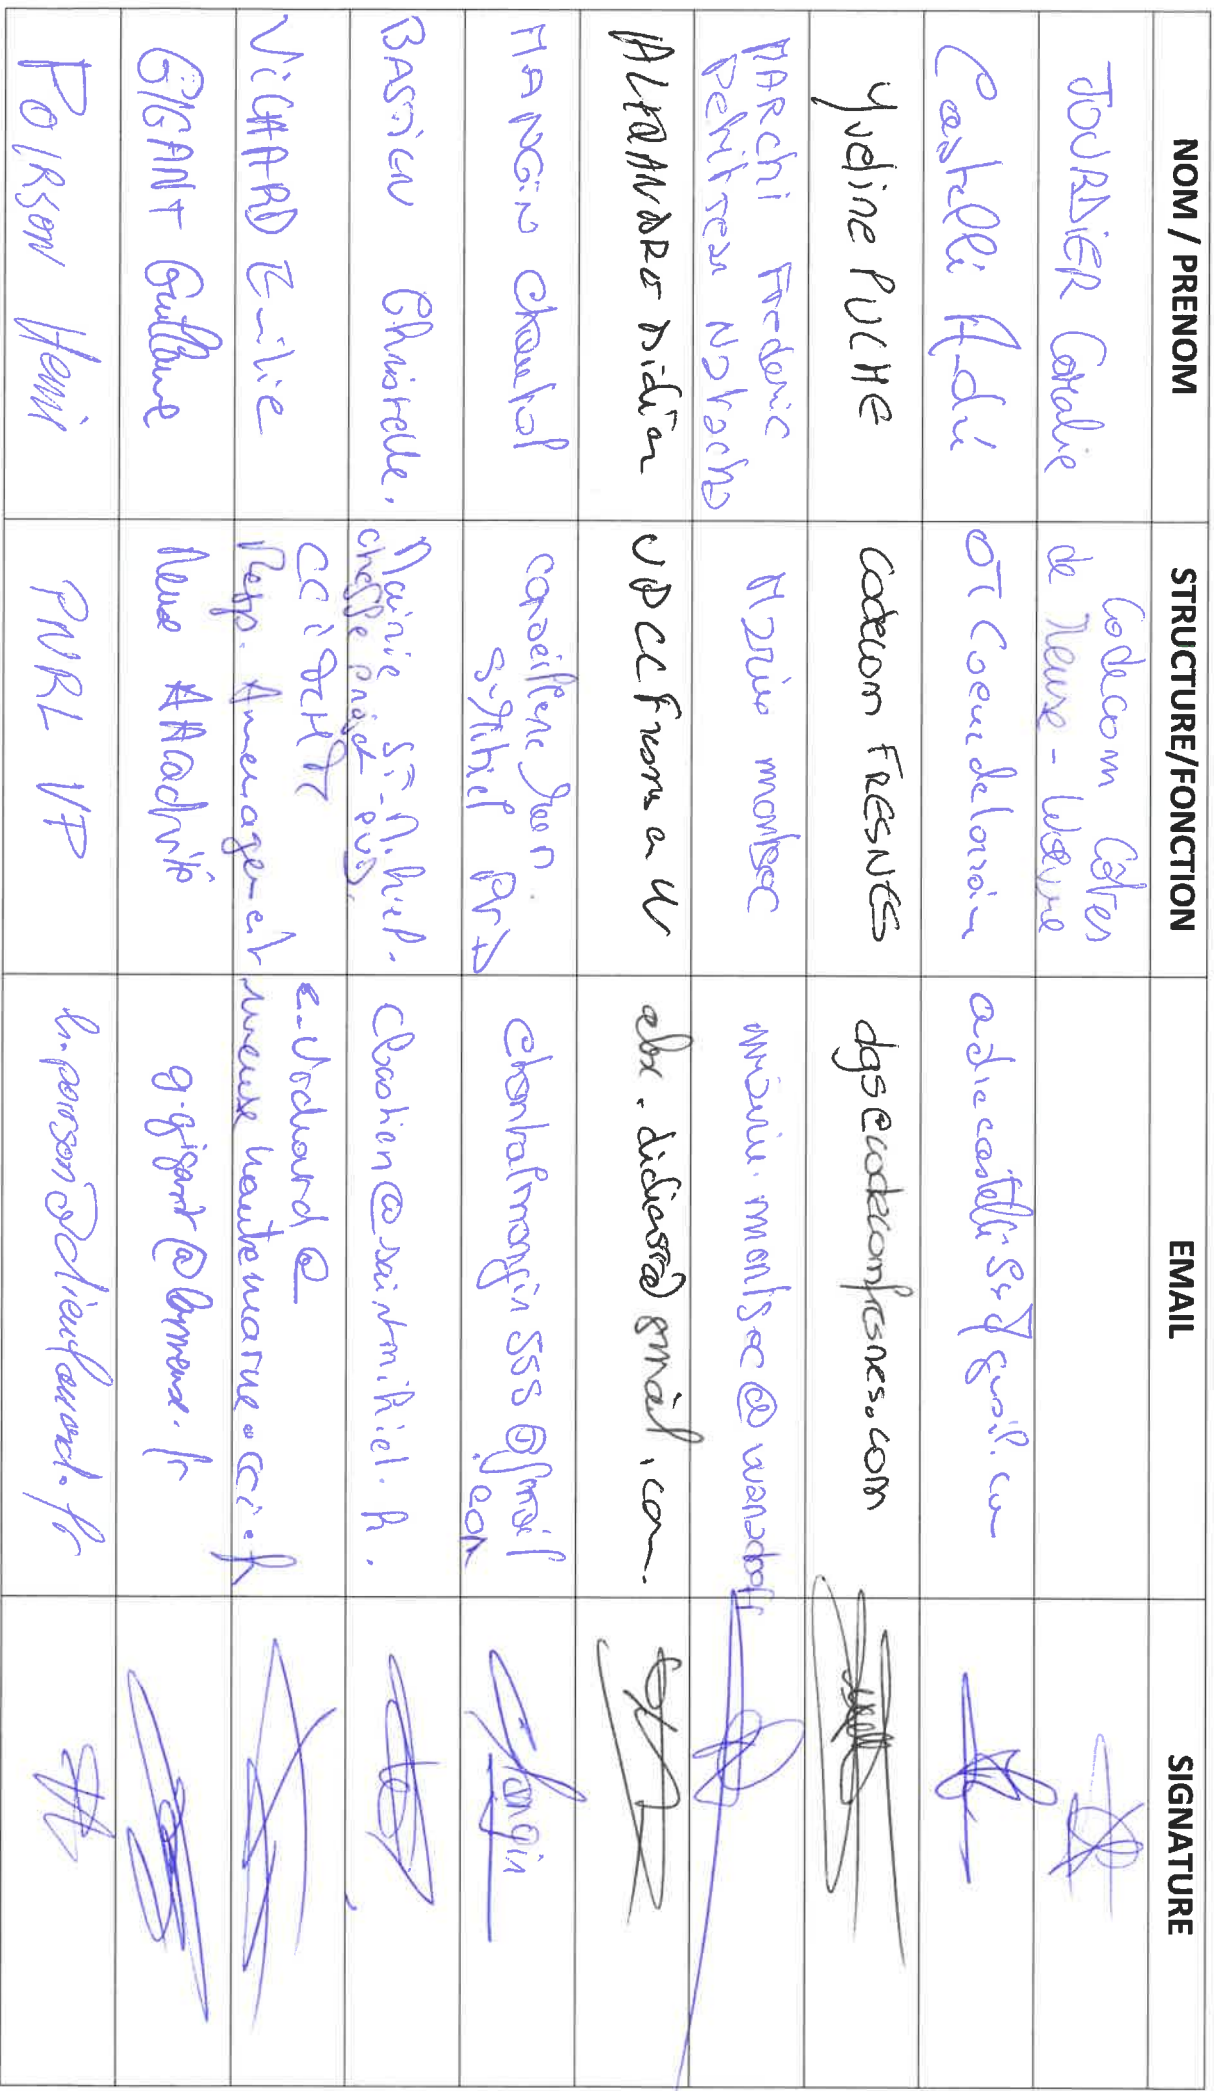 NOM / PRENOM STRUCTURE/FONCTION EMAIL SIGNATURE
JOURDIER Coralie
Codecom Côtes
de Meuse - Woëvre
Castelli André
OT Coeur de Lorraine
Yveline PUCHE
Codecom FRESNES
dgs@codecomfresnes.com
MARCHI Frederic
Petitjean
Mairie montsec
mairie.montsec@wanadoo.fr
ALEXANDRE Didier
alex.didier@gmail.com
MANGIN Chantal
conseillère
St Mihiel
chantalmangin555@gmail
.com
Mangin
BASTIEN Christelle.
Mairie St-Mihiel.
cheffe projet PVD
cbastien@saintmihiel.fr.
VICHARD Emilie
CCI
Resp. Amenagement
e.vichard@
meusehautemarne.cci.fr
GIGANT Guillaume
Meuse Attractivité
POIRSON Henri
PNRL VP